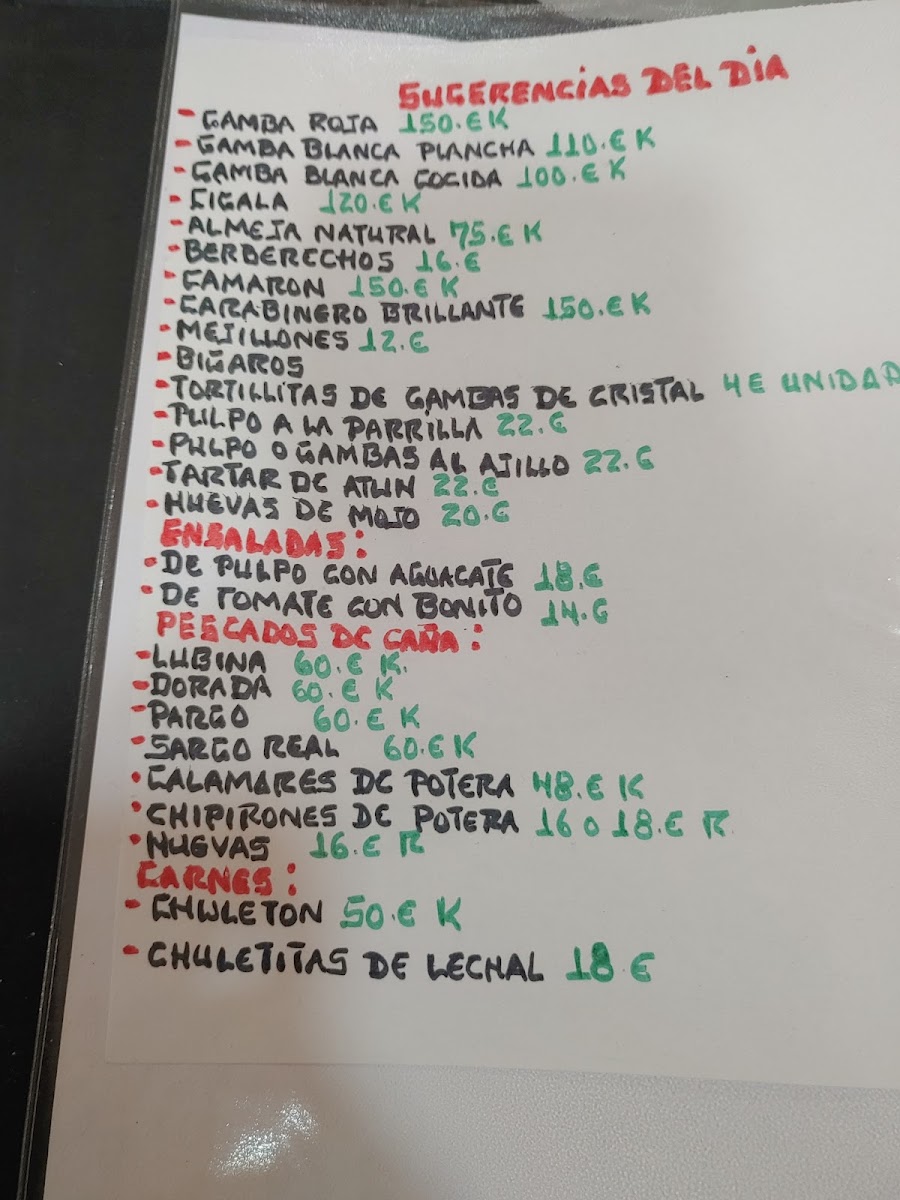 SUGERENCIAS DEL DIA
- GAMBA ROJA 150.€ K
- GAMBA BLANCA PLANCHA 110.€ K
- GAMBA BLANCA COCIDA 100.€ K
- CIGALA 120.€ K
- ALMEJA NATURAL 75.€ K
- BERBERECHOS 16.€
- CAMARON 150.€ K
- CARABINERO BRILLANTE 150.€ K
- MEJILLONES 12.€
- BIGAROS
- TORTILLITAS DE GAMBAS DE CRISTAL 4€ UNIDAD
- PULPO A LA PARRILLA 22.€
- PULPO O GAMBAS AL AJILLO 22.€
- TARTAR DE ATUN 22.€
- HUEVAS DE MOJO 20.€
ENSALADAS:
- DE PULPO CON AGUACATE 18.€
- DE TOMATE CON BONITO 14.€
PESCADOS DE CAÑA:
- LUBINA 60.€ K.
- DORADA 60.€ K
- PARGO 60.€ K
- SARGO REAL 60.€ K
- CALAMARES DE POTERA 48.€ K
- CHIPIRONES DE POTERA 16 O 18.€ R
- HUEVAS 16.€ R
CARNES:
- CHULETON 50.€ K
- CHULETITAS DE LECHAL 18 €